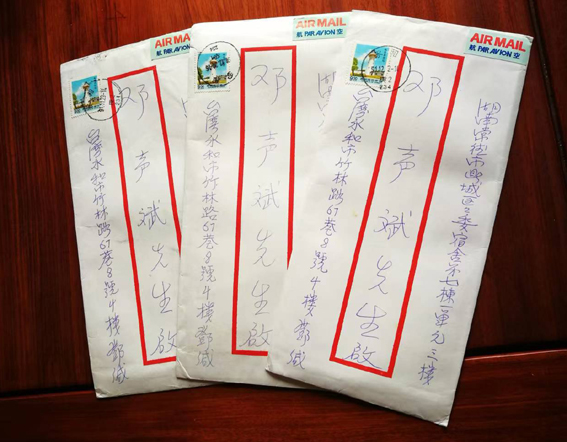 AIR MAIL
航 PAR AVION 空
邓声斌先生啟
台灣永和市竹林路67巷8號4樓鄧緘
AIR MAIL
航 PAR AVION 空
湖
邓声斌先生啟
台灣永和市竹林路67巷8號4樓鄧緘
AIR MAIL
航 PAR AVION 空
湖南常德市鼎城区区委宿舍第七棟一單元三樓
邓声斌先生啟
台灣永和市竹林路67巷8號4樓鄧緘